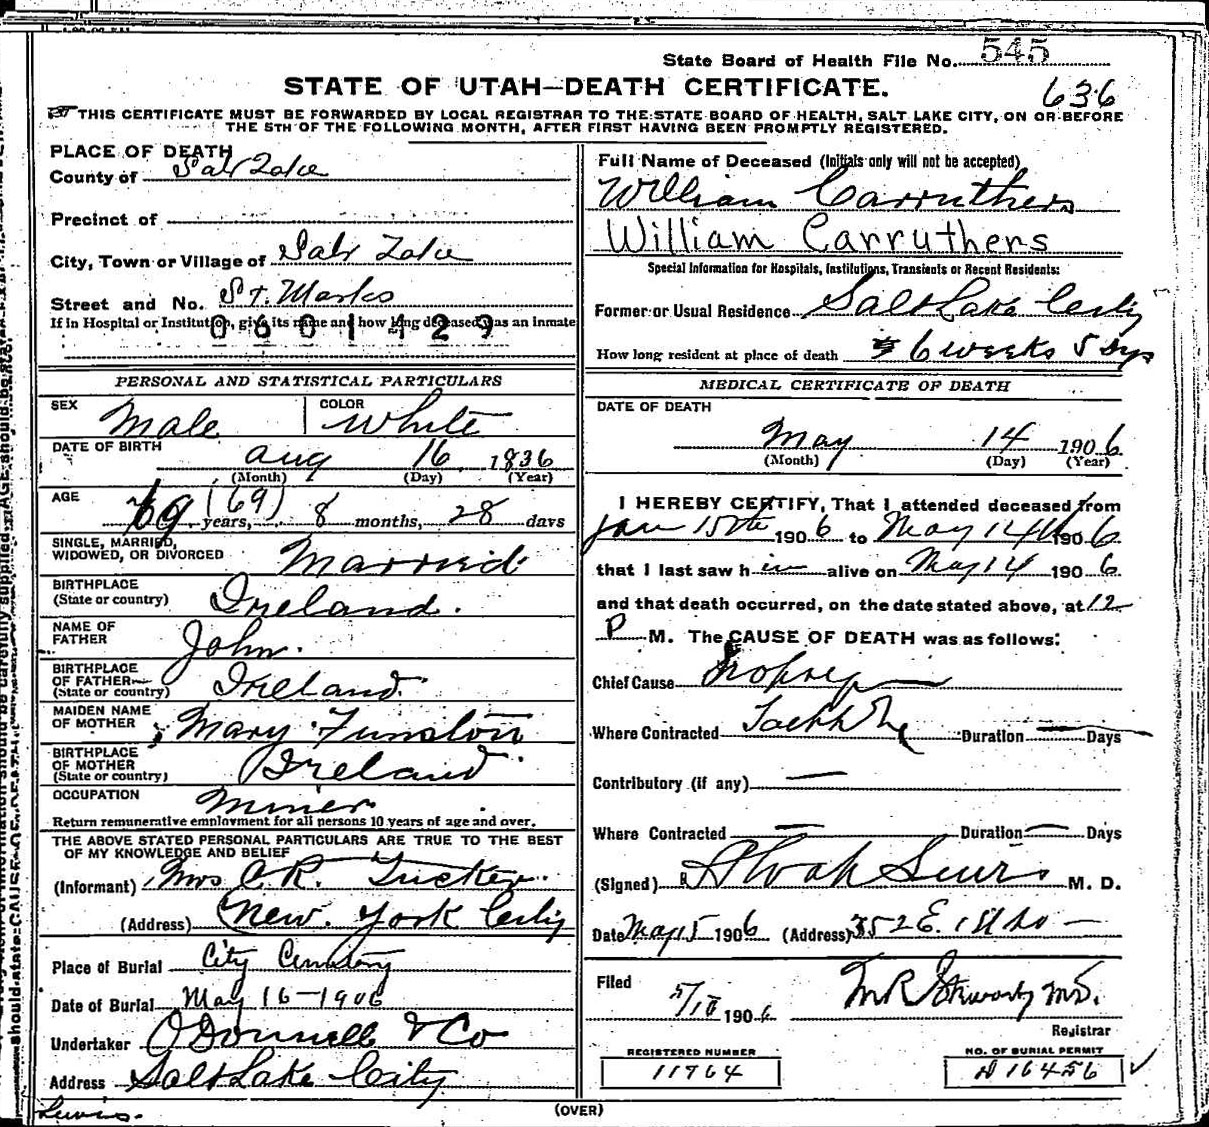 State Board of Health File No. 545
STATE OF UTAH—DEATH CERTIFICATE.
636
THIS CERTIFICATE MUST BE FORWARDED BY LOCAL REGISTRAR TO THE STATE BOARD OF HEALTH, SALT LAKE CITY, ON OR BEFORE
THE 5TH OF THE FOLLOWING MONTH, AFTER FIRST HAVING BEEN PROMPTLY REGISTERED.
PLACE OF DEATH
County of Salt Lake
Precinct of
City, Town or Village of Salt Lake
Street and No. St. Marks
If in Hospital or Institution, give its name and how long deceased was an inmate
0601429
PERSONAL AND STATISTICAL PARTICULARS
SEX Male
COLOR White
DATE OF BIRTH
Aug 16 1836
(Month) (Day) (Year)
AGE
69 (69) years, 8 months, 28 days
SINGLE, MARRIED,
WIDOWED, OR DIVORCED Married
BIRTHPLACE
(State or country) Ireland.
NAME OF
FATHER John.
BIRTHPLACE
OF FATHER
(State or country) Ireland.
MAIDEN NAME
OF MOTHER Mary Funston
BIRTHPLACE
OF MOTHER
(State or country) Ireland.
OCCUPATION Miner
Return remunerative employment for all persons 10 years of age and over.
THE ABOVE STATED PERSONAL PARTICULARS ARE TRUE TO THE BEST
OF MY KNOWLEDGE AND BELIEF
(Informant) Mrs C.R. Tucker.
(Address) New York City
Place of Burial City Cemetery
Date of Burial May 16-1906
Undertaker O'Donnell & Co
Address Salt Lake City
Lewis.
Full Name of Deceased (Initials only will not be accepted)
William Carruthers
William Carruthers
Special Information for Hospitals, Institutions, Transients or Recent Residents:
Former or Usual Residence Salt Lake City
How long resident at place of death 6 weeks 5 Dys
MEDICAL CERTIFICATE OF DEATH
DATE OF DEATH
May 14 1906
(Month) (Day) (Year)
I HEREBY CERTIFY, That I attended deceased from
Jan 15th 1906 to May 14th 1906
that I last saw him alive on May 14 1906
and that death occurred, on the date stated above, at 12
P M. The CAUSE OF DEATH was as follows:
Chief Cause Dropsy
Where Contracted Duration — Days
Contributory (if any) —
Where Contracted — Duration — Days
(Signed) M. D.
Date May 15 1906 (Address) 352 E. 1st So —
Filed
1906
M.D.
Registrar
REGISTERED NUMBER
11764
NO. OF BURIAL PERMIT
16456
(OVER)